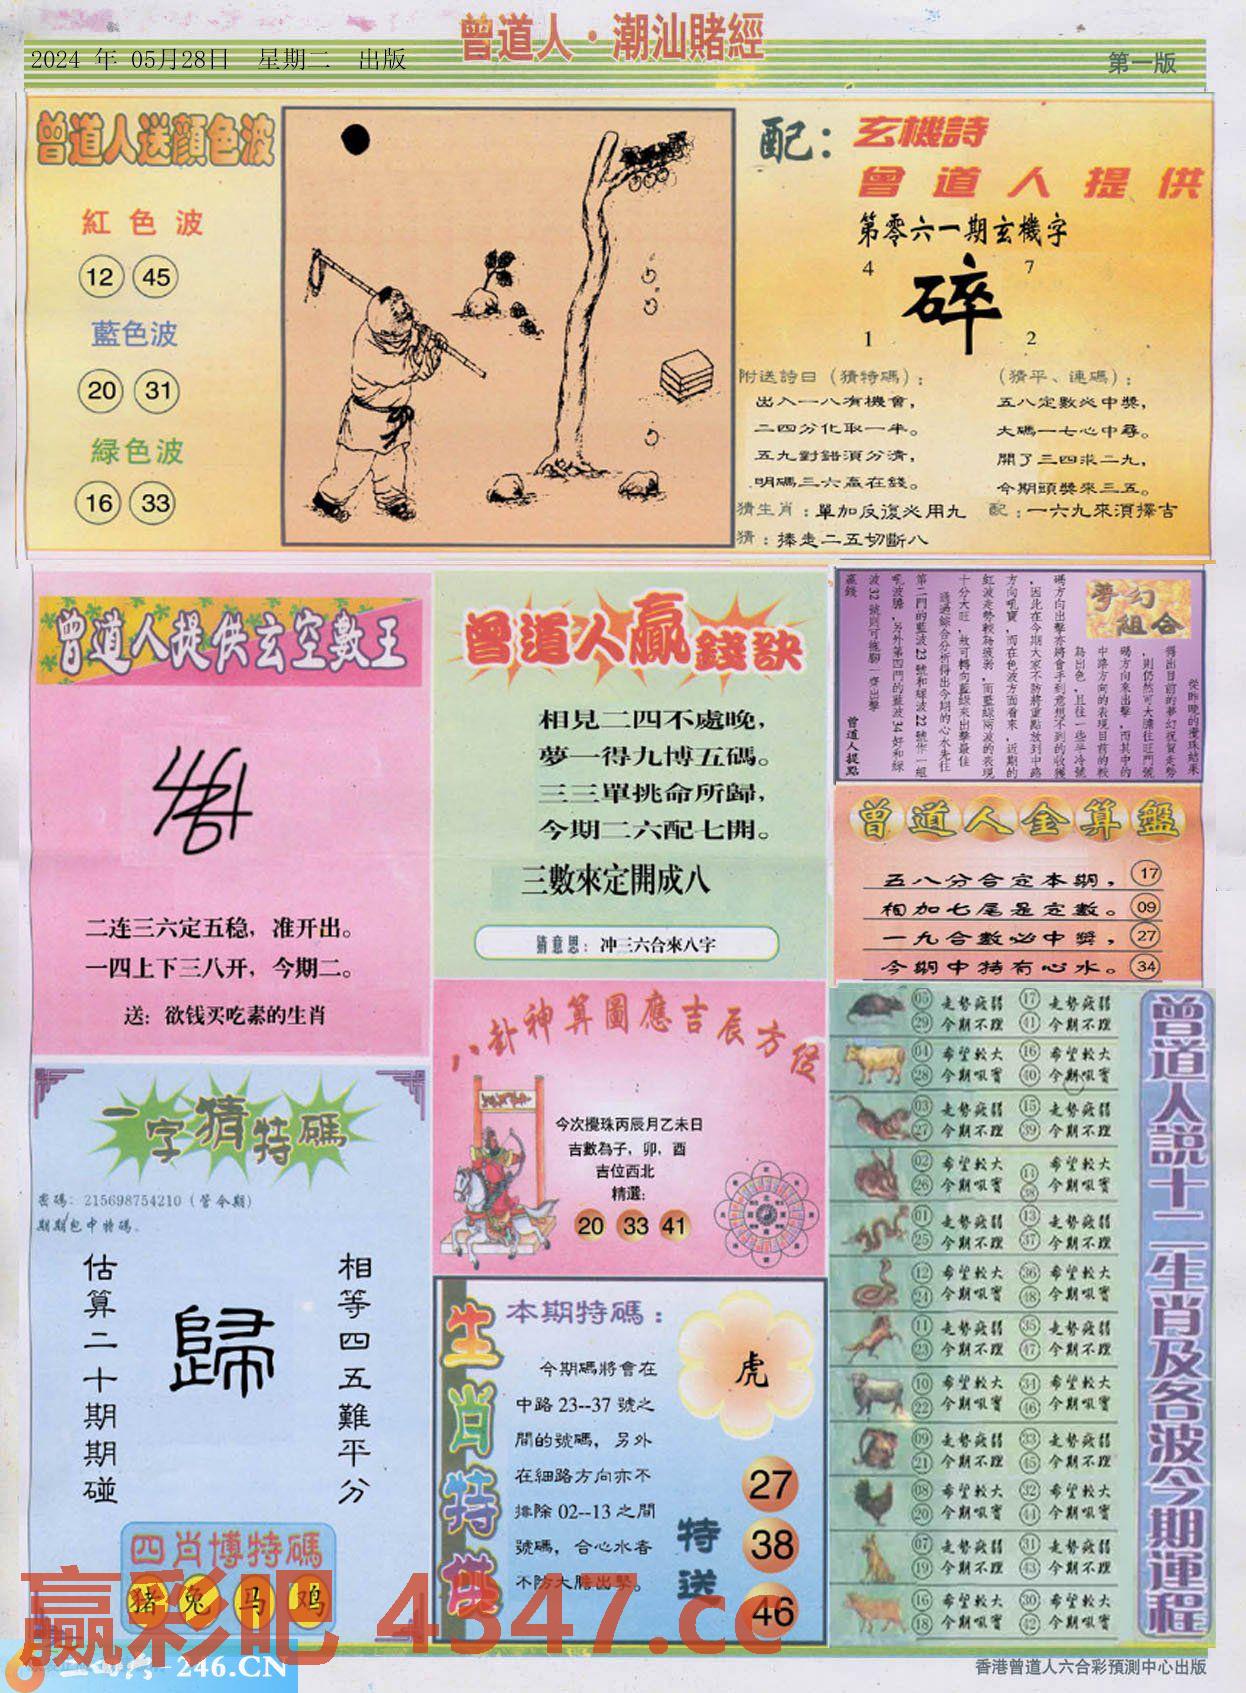 曾道人·潮汕賭經
2024 年 05月28日 星期二 出版
第一版
曾道人送顏色波
紅色波
12 45
藍色波
20 31
緑色波
16 33
配：玄機詩
曾道人提供
第零六一期玄機字
4 7
碎
1 2
附送詩曰（猜特碼）：
出入一八有機會，
二四分化取一半。
五九對錯須分清，
明碼三六贏在錢。
（猜平、連碼）：
五八定數必中獎，
大碼一七心中尋。
開了三四求二九，
今期頭獎來三五。
猜生肖：單加反復必用九
配：一六九來須擇吉
猜：捧走二五切斷八
曾道人提供玄空數王
二连三六定五稳，准开出。
一四上下三八开，今期二。
送：欲钱买吃素的生肖
曾道人贏錢訣
相見二四不處晚，
夢一得九博五碼。
三三單挑命所歸，
今期二六配七開。
三數來定開成八
猜意思：冲三六合來八字
夢幻組合
從昨晚的攪珠結果
得出目前的夢幻祝賀走勢
，則仍然可大膽往旺門號
碼方向來出擊，而其中的
中路方向的表現目前的較
為出色，且往一些半冷號
碼方向出擊亦將會手到意想不到的收獲
，因此在今期大家不防將重點放到中路
方向吼寶，而在色波方面看來，近期的
紅波走勢較為疲弱，而藍綠兩波的表現
十分大旺，故可轉向藍綠來出擊最佳
透過綜合分析得出今期的心水先往
第二門的藍波23號和綠波22號作一組
吼波膽，另外第四門的藍波34好和綠
波32號則可拖腳一齊出擊
贏錢
曾道人提點
曾道人金算盤
五八分合定本期， 17
相加七尾是定數。 09
一九合數必中獎， 27
今期中特有心水。 34
八卦神算圖應吉辰方位
今次攪珠丙辰月乙未日
吉數為子，卯，酉
吉位西北
精選：
20 33 41
一字猜特碼
密碼：215698754210（管今期）
期期包中特碼．
估算二十期期碰
歸
相等四五難平分
四肖博特碼
猪 兔 马 鸡
生肖特供
本期特碼：
今期碼將會在
中路 23--37 號之
間的號碼，另外
在細路方向亦不
排除 02--13 之間
號碼，合心水者
不防大膽出擊。
虎
特送
27
38
46
曾道人説十二生肖及各波今期運程
05 走勢疲弱 17 走勢疲弱
29 今期不理 41 今期不理
04 希望較大 16 希望較大
28 今期吼實 40 今期吼實
03 走勢疲弱 15 走勢疲弱
27 今期不理 39 今期不理
02 希望較大 希望較大
26 今期吼實 38 今期吼實
01 走勢疲弱 13 走勢疲弱
25 今期不理 37 今期不理
12 希望較大 36 希望較大
24 今期吼實 48 今期吼實
11 走勢疲弱 35 走勢疲弱
23 今期不理 47 今期不理
10 希望較大 34 希望較大
22 今期吼實 46 今期吼實
09 走勢疲弱 33 走勢疲弱
21 今期不理 45 今期不理
08 希望較大 32 希望較大
20 今期吼實 44 今期吼實
07 走勢疲弱 31 走勢疲弱
19 今期不理 43 今期不理
16 希望較大 30 希望較大
18 今期吼實 42 今期吼實
赢彩吧 4347.cc
246.CN
香港曾道人六合彩預測中心出版